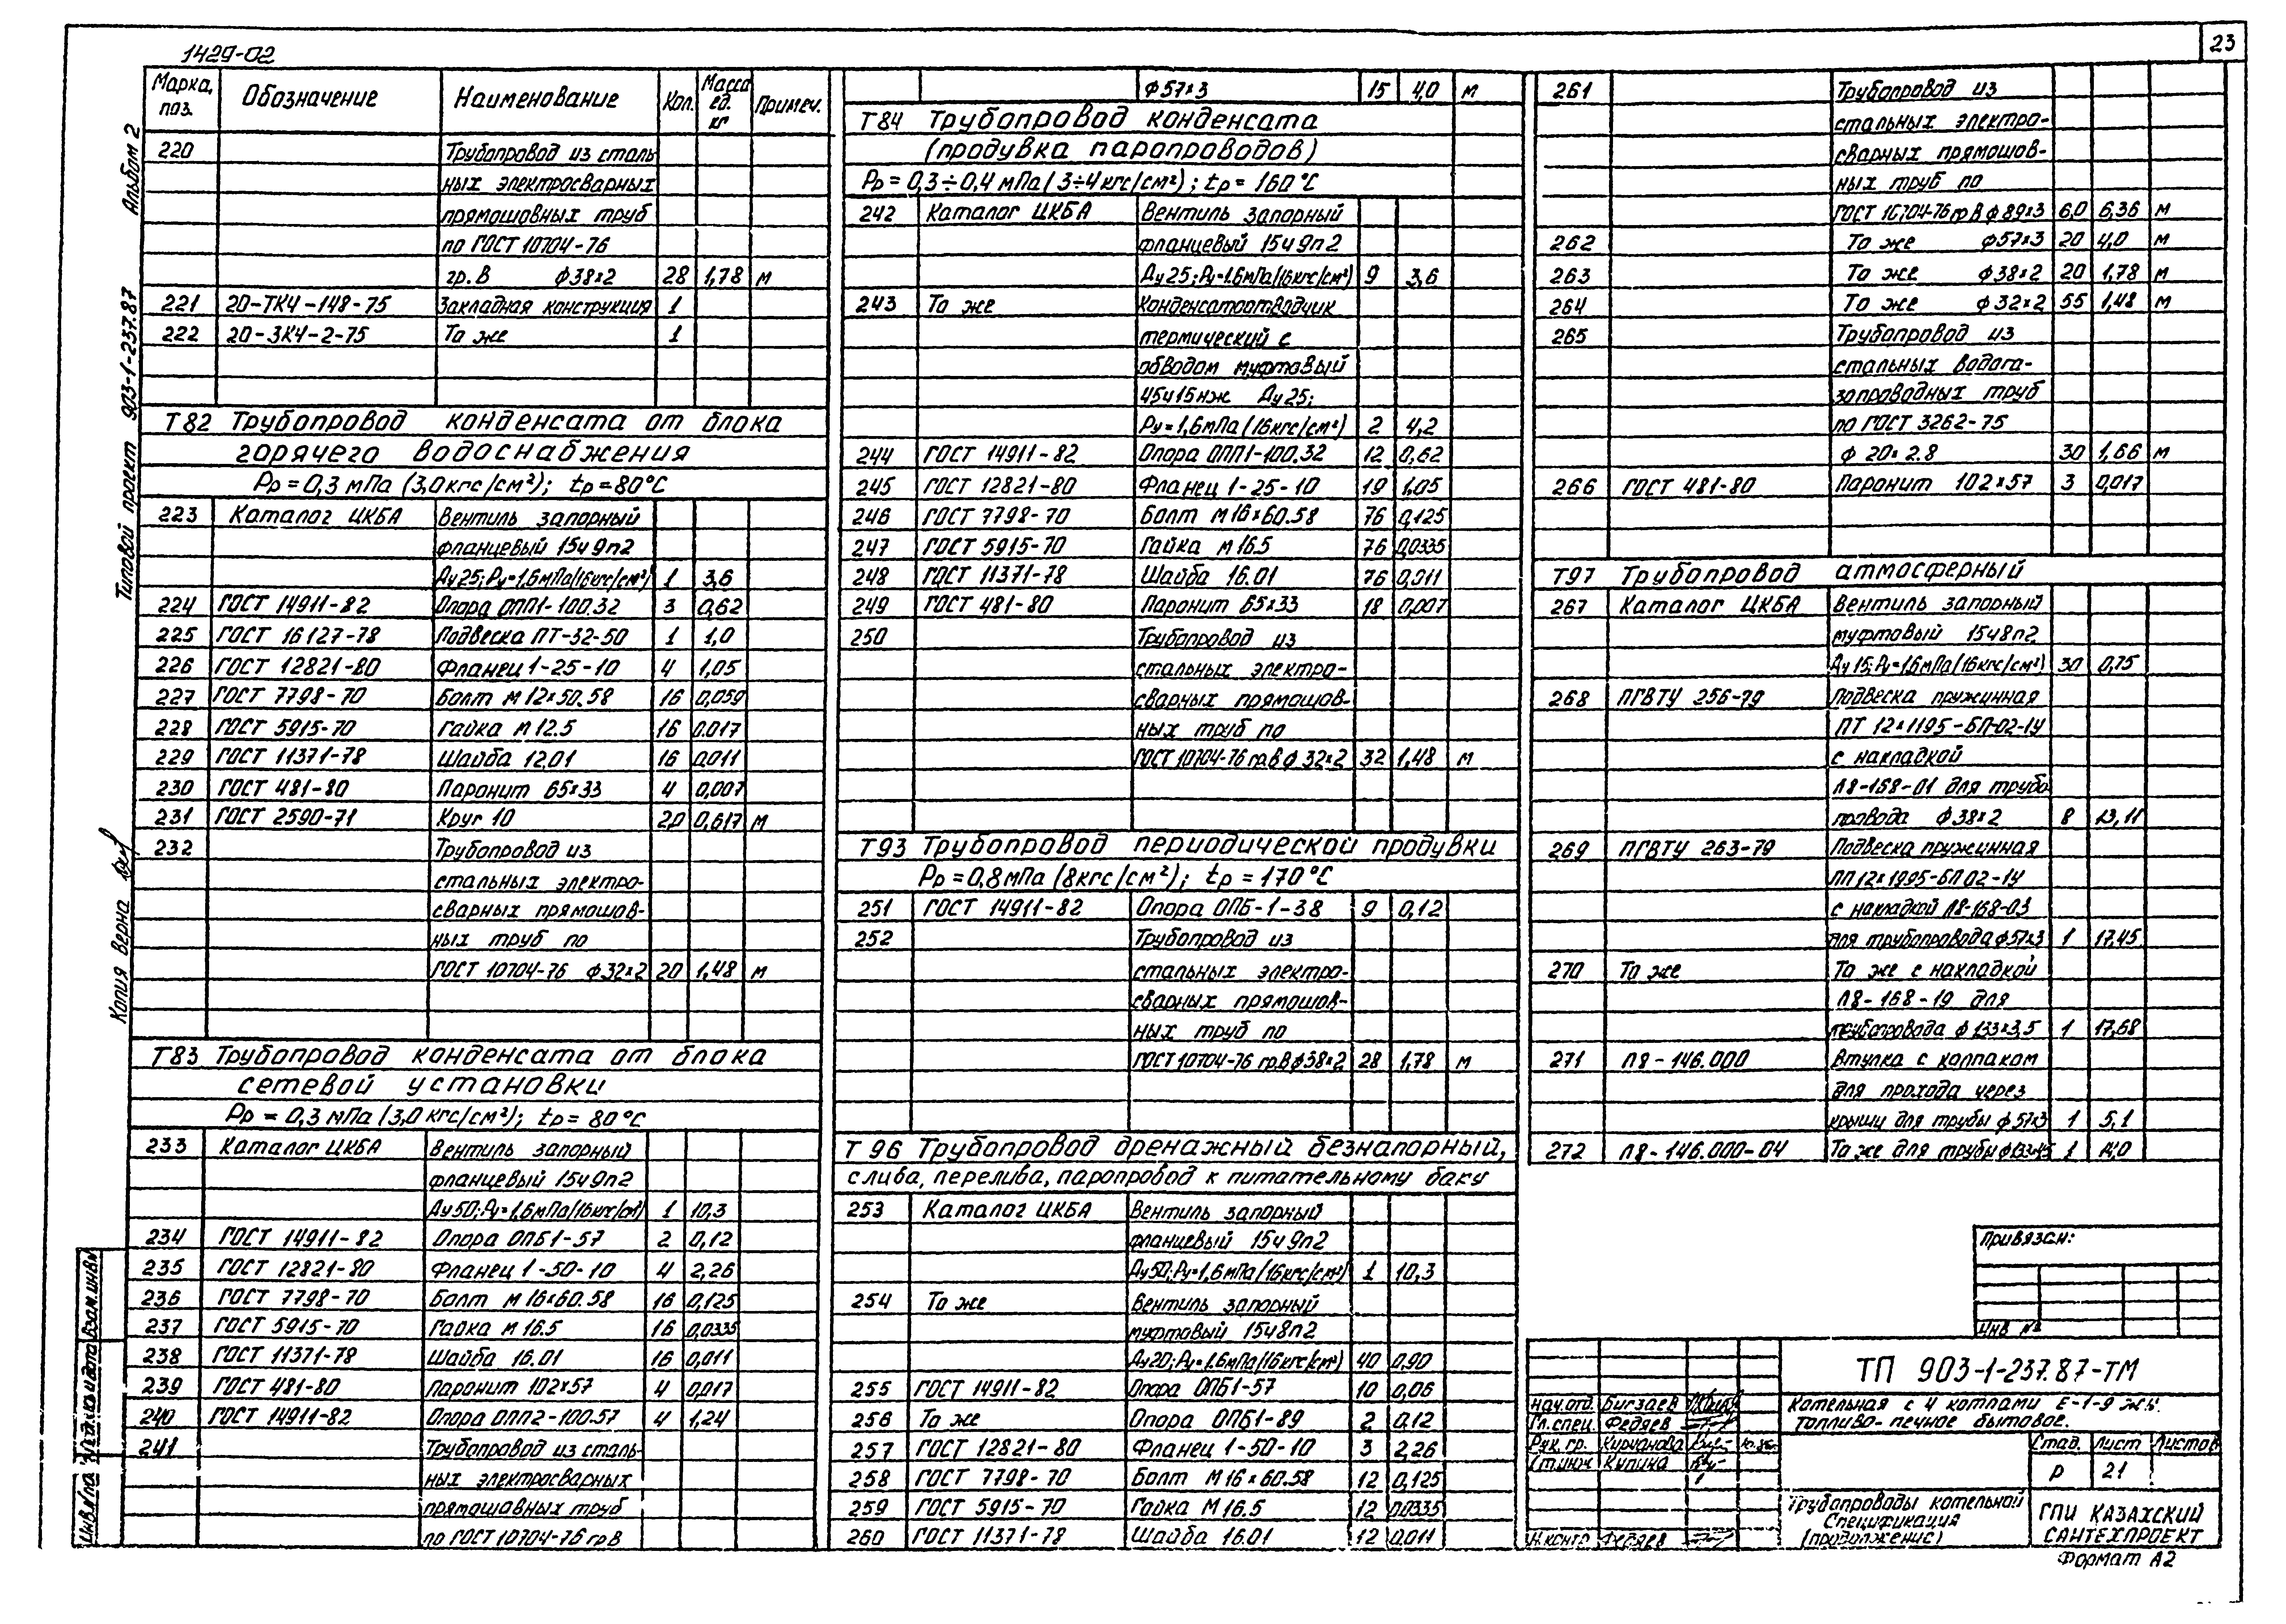 23
1429-02
Альбом 2
Типовой проект 903-1-237.87
Копия верна
Марка, поз. Обозначение Наименование Кол. Масса ед. кг Примеч.
220 Трубопровод из сталь
ных электросварных
прямошовных труб
по ГОСТ 10704-76
гр. В ф38×2 28 1,78 м
221 20-ТК4-148-75 Закладная конструкция 1
222 20-ЗК4-2-75 То же 1
Т82 Трубопровод конденсата от блока
горячего водоснабжения
Рр=0,3 мПа (3,0 кгс/см²); tр=80°С
223 Каталог ЦКБА Вентиль запорный
фланцевый 15ч9п2
Ду25; Ру=1,6мПа(16кгс/см²) 1 3,6
224 ГОСТ 14911-82 Опора ОПП1-100.32 3 0,62
225 ГОСТ 16127-78 Подвеска ПТ-32-50 1 1,0
226 ГОСТ 12821-80 Фланец 1-25-10 4 1,05
227 ГОСТ 7798-70 Болт М12×50.58 16 0,059
228 ГОСТ 5915-70 Гайка М12.5 16 0.017
229 ГОСТ 11371-78 Шайба 12.01 16 0,011
230 ГОСТ 481-80 Паронит 65×33 4 0,007
231 ГОСТ 2590-71 Круг 10 20 0,617 м
232 Трубопровод из
стальных электро-
сварных прямошов-
ных труб по
ГОСТ 10704-76 ф32×2 20 1,48 м
Т83 Трубопровод конденсата от блока
сетевой установки
Рр = 0,3 мПа (3,0 кгс/см²); tр= 80°С
233 Каталог ЦКБА Вентиль запорный
фланцевый 15ч9п2
Ду50; Ру=1,6мПа(16кгс/см²) 1 10,3
234 ГОСТ 14911-82 Опора ОПБ1-57 2 0,12
235 ГОСТ 12821-80 Фланец 1-50-10 4 2,26
236 ГОСТ 7798-70 Болт М16×60.58 16 0,125
237 ГОСТ 5915-70 Гайка М16.5 16 0,0335
238 ГОСТ 11371-78 Шайба 16.01 16 0,011
239 ГОСТ 481-80 Паронит 102×57 4 0,017
240 ГОСТ 14911-82 Опора ОПП2-100.57 4 1,24
241 Трубопровод из сталь-
ных электросварных
прямошовных труб
по ГОСТ 10704-76 гр В
ф57×3 15 4,0 м
Т84 Трубопровод конденсата
(продувка паропроводов)
Рр=0,3÷0,4 мПа (3÷4 кгс/см²); tр= 160°С
242 Каталог ЦКБА Вентиль запорный
фланцевый 15ч9п2
Ду25; Ру=1.6мПа(16кгс/см²) 9 3,6
243 То же Конденсатоотводчик
термический с
обводом муфтовый
45ч15нж Ду25;
Ру=1,6мПа (16кгс/см²) 2 4,2
244 ГОСТ 14911-82 Опора ОПП1-100.32 12 0,62
245 ГОСТ 12821-80 Фланец 1-25-10 19 1,05
246 ГОСТ 7798-70 Болт М16×60.58 76 0,125
247 ГОСТ 5915-70 Гайка М16.5 76 0,0335
248 ГОСТ 11371-78 Шайба 16.01 76 0,011
249 ГОСТ 481-80 Паронит 65×33 18 0,007
250 Трубопровод из
стальных электро-
сварных прямошов-
ных труб по
ГОСТ 10704-76 гр.В ф 32×2 32 1,48 м
Т93 Трубопровод периодической продувки
Рр=0,8мПа (8кгс/см²); tр=170°С
251 ГОСТ 14911-82 Опора ОПБ-1-38 9 0,12
252 Трубопровод из
стальных электро-
сварных прямошов-
ных труб по
ГОСТ 10704-76 гр.В ф38×2 28 1,78 м
Т 96 Трубопровод дренажный безнапорный,
слива, перелива, паропровод к питательному баку
253 Каталог ЦКБА Вентиль запорный
фланцевый 15ч9п2
Ду50; Ру=1,6мПа(16кгс/см²) 1 10,3
254 То же Вентиль запорный
муфтовый 15ч8п2
Ду20; Ру=1.6мПа(16кгс/см²) 40 0,90
255 ГОСТ 14911-82 Опора ОПБ1-57 10 0,06
256 То же Опора ОПБ1-89 2 0,12
257 ГОСТ 12821-80 Фланец 1-50-10 3 2,26
258 ГОСТ 7798-70 Болт М16×60.58 12 0,125
259 ГОСТ 5915-70 Гайка М16.5 12 0,0335
260 ГОСТ 11371-78 Шайба 16.01 12 0,011
261 Трубопровод из
стальных электро-
сварных прямошов-
ных труб по
ГОСТ 10704-76 гр В ф 89×3 6,0 6,36 м
262 То же ф57×3 20 4,0 м
263 То же ф38×2 20 1,78 м
264 То же ф 32×2 55 1,48 м
265 Трубопровод из
стальных водога-
зопроводных труб
по ГОСТ 3262-75
ф 20× 2.8 30 1,66 м
266 ГОСТ 481-80 Паронит 102×57 3 0,017
Т97 Трубопровод атмосферный
267 Каталог ЦКБА Вентиль запорный
муфтовый 15ч8п2
Ду15; Ру=1.6мПа(16кгс/см²) 30 0,75
268 ПГВТУ 256-79 Подвеска пружинная
ПТ 12×1195-БП-02-1У
с накладкой
Л8-168-01 для трубо
провода ф38×2 8 13,11
269 ПГВТУ 263-79 Подвеска пружинная
ПП12×1995-БП02-1У
с накладкой Л8-168-03
для трубопровода ф57×3 1 17,45
270 То же То же с накладкой
Л8-168-19 для
трубопровода ф133×3,5 1 17,68
271 Л8-146.000 Втулка с колпаком
для прохода через
крышу для трубы ф57×3 1 5,1
272 Л8-146.000-04 То же для трубы 1
Привязан:
Инв №
ТП 903-1-237.87-ТМ
Котельная с 4 котлами Е-1-9
Топливо-печное бытовое.
Нач.отд. Бигзаев
Гл.спец. Федяев
Рук. гр.
Ст.инж
Н.контр Федяев
Стад. Лист Листов
Р 21
Трубопроводы котельной
Спецификация
(продолжение)
ГПИ КАЗАХСКИЙ
САНТЕХПРОЕКТ
Формат А2
Инв.№ Взам.инв.№